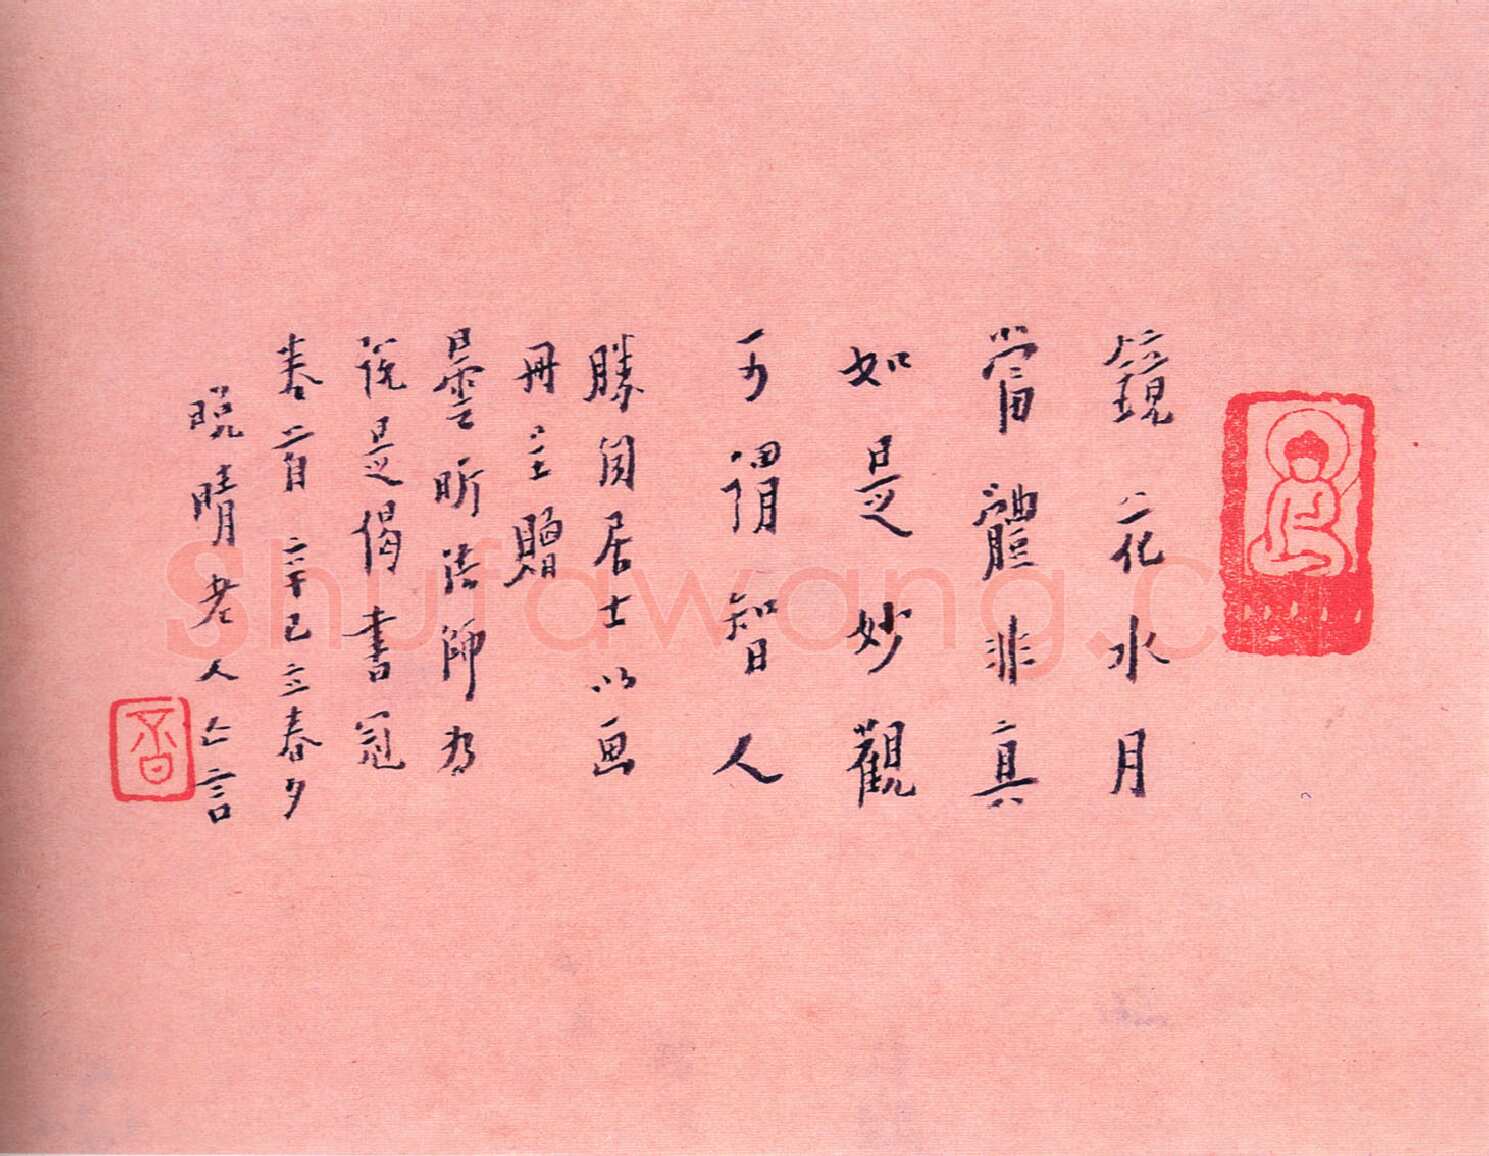 鏡花水月
當體非真
如是妙觀
可謂智人
勝聞居士以画
冊主贈
曇昕法師為
說是偈書冠
卷首辛巳立春夕
晚晴老人亡言
Shufawang.c